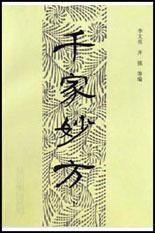 千家妙方
李文亮 齐强 等编